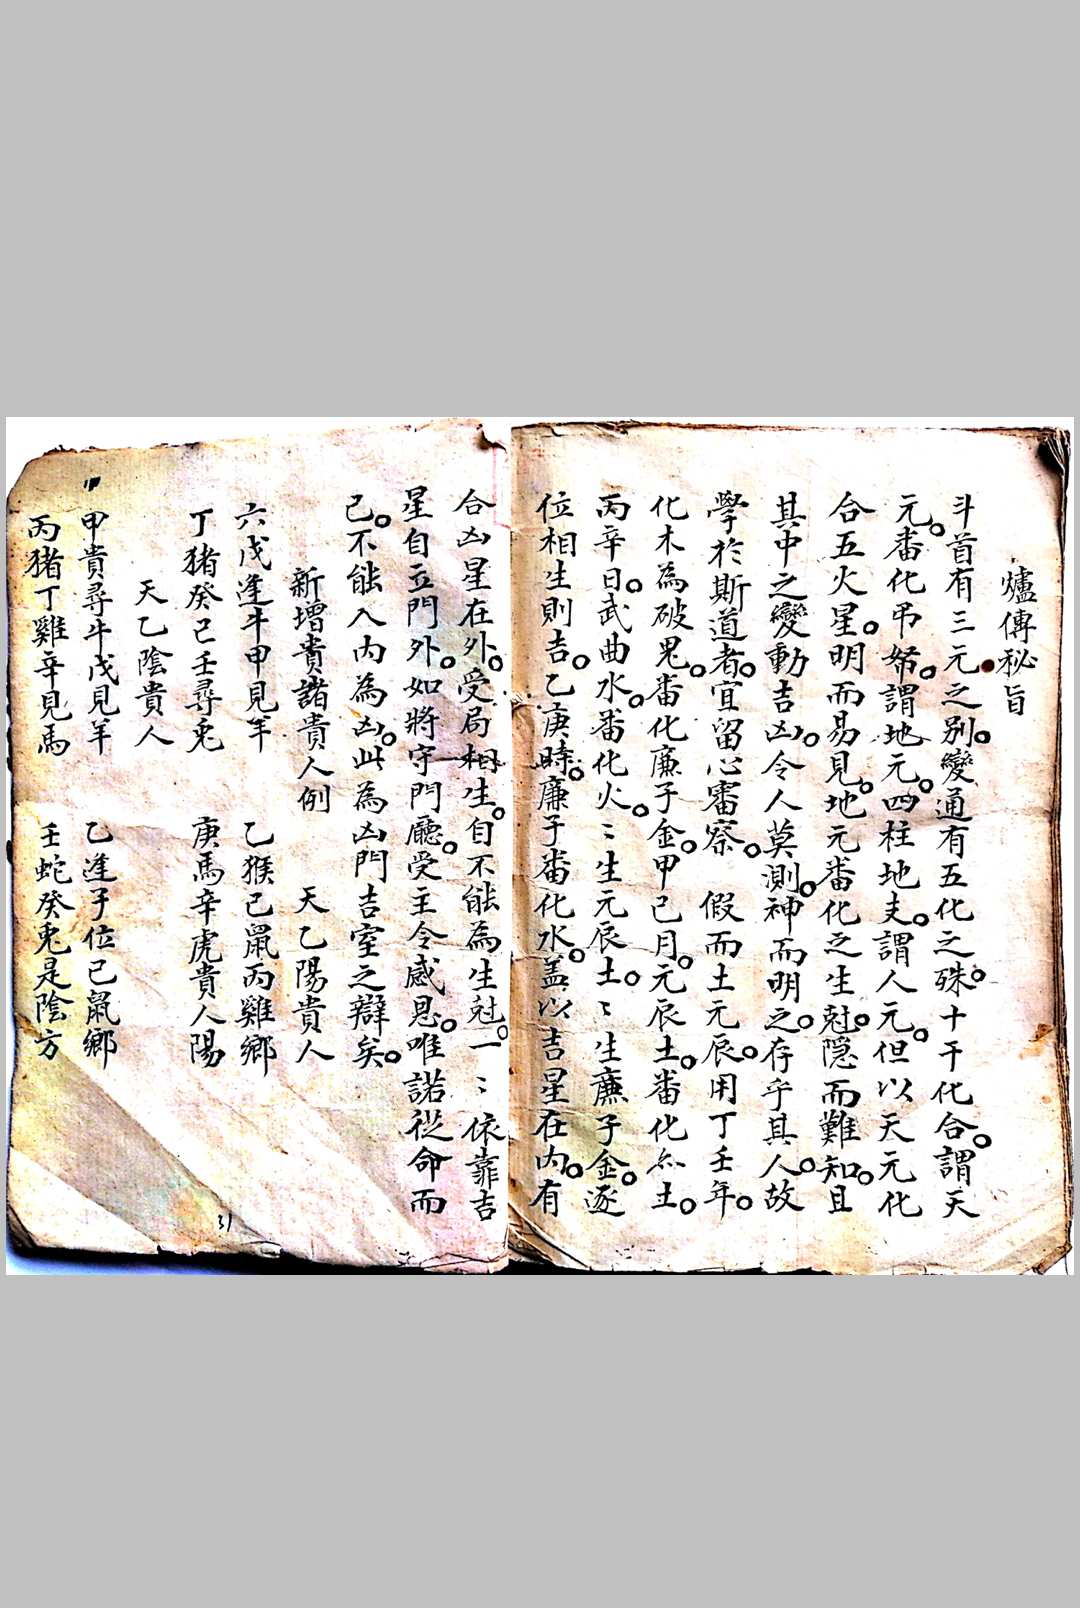 爐傳秘旨
斗首有三元之別。變通有五化之殊。十干化合。謂天
元。番化吊婦。謂地元。四柱地支。謂人元。但以天元化
合五火星。明而易見。地元番化之生尅。隱而難知。且
其中之變動吉凶。令人莫測。神而明之。存乎其人。故
學於斯道者。宜留心審察。假而土元辰。用丁壬年。
化木為破鬼。番化廉子金。甲己月。元辰土。番化亦土。
丙辛日。武曲水。番化火。〻生元辰土。〻生廉子金。逐
位相生則吉。乙庚時。廉子番化水。盖以吉星在內。有
合凶星在外。受局相生。自不能為生尅。一〻依靠吉
星自立門外。如將守門廳。受主令感恩。唯諾從命而
已。不能入內為凶。此為凶門吉室之辯矣。
新增貴諸貴人例 天乙陽貴人
六戊逢牛甲見羊 乙猴己鼠丙雞鄉
丁猪癸己壬尋兎 庚馬辛虎貴人陽
天乙陰貴人
甲貴尋牛戊見羊 乙逢子位己鼠鄉
丙猪丁雞辛見馬 壬蛇癸兎是陰方